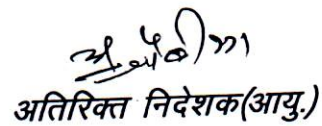 अतिरिक्त निदेशक(आयु.)